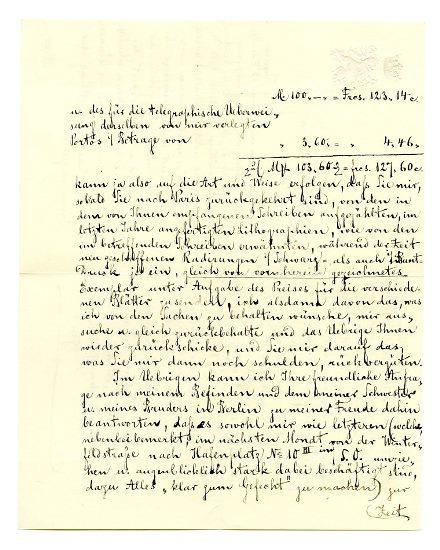 M 100.-.- = Frcs. 123. 14 c.
u. des für die telegraphische Ueberwei-
sung derselben von mir verlegten
Portos i/ Betrage von " 3.60 = " 4.46
M 103.60 = frcs. 127.60 c.
kann ja also auf die Art und Weise erfolgen, daß Sie mir,
sobald Sie nach Paris zurückgekehrt sind, von den in
dem von Ihnen empfangenen Schreiben aufgezählten, im
letzten Jahre angefertigten Lithographien, wie von den
im betreffenden Schreiben erwähnten, während der Zeit
neu geschaffenen Radierungen i/ Schwarz- als auch i/ Bunt-
Druck je ein, gleich von vornherein gezeichnetes
Exemplar unter Aufgabe des Preises für die verschiede-
nen Blätter zusenden, ich alsdann davon das, was
ich von den Sachen zu behalten wünsche, mir aus-
suche u. gleich zurückbehalte und das Uebrige Ihnen
wieder zurückschicke, und Sie mir darauf das,
was Sie mir dann noch schulden, rückvergüten.
Im Uebrigen kann ich Ihre freundliche Anfra-
ge nach meinem Befinden und dem meiner Schwester
u. meines Bruders in Berlin zu meiner Freude dahin
beantworten, daß es sowohl mir wie letzteren (welche,
nebenbei bemerkt, im nächsten Monat von der Winter-
feldstraße nach Hafenplatz No 10 III in S.O. umzie-
hen u. augenblicklich stark dabei beschäftigt sind,
dazu Alles „klar zum Gefecht" zu machen) zur
(Zeit